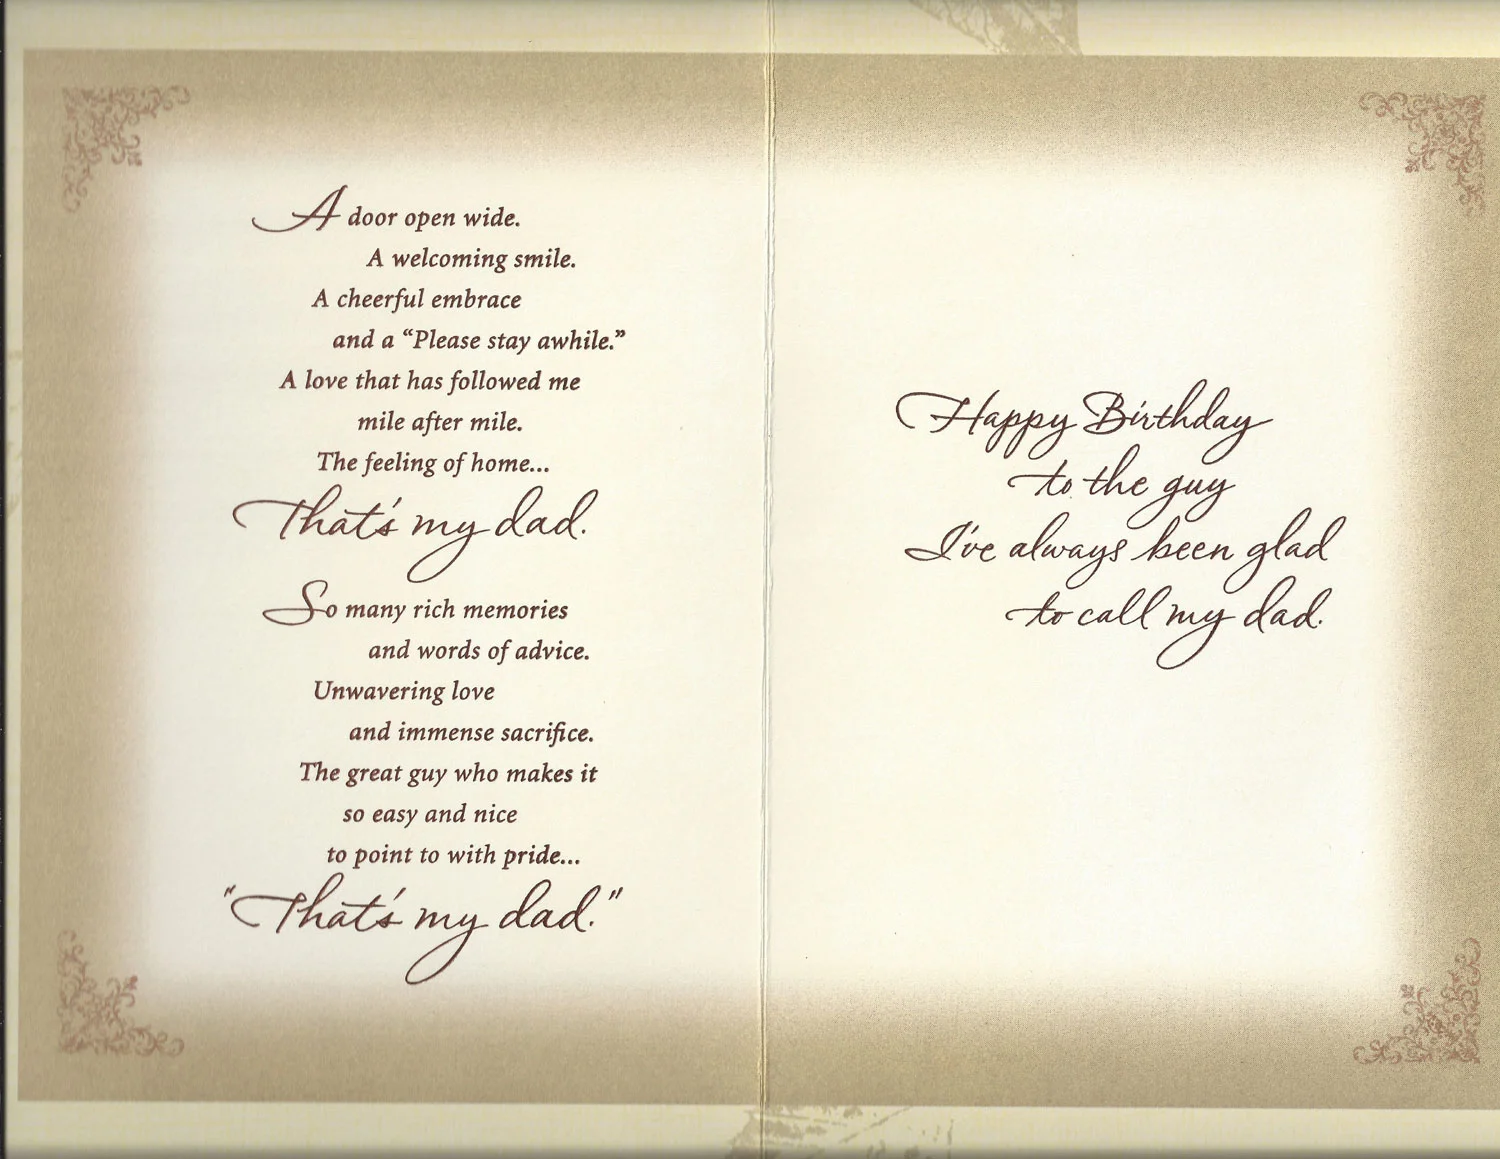 A door open wide.
A welcoming smile.
A cheerful embrace
and a “Please stay awhile.”
A love that has followed me
mile after mile.
The feeling of home...
That's my dad.
So many rich memories
and words of advice.
Unwavering love
and immense sacrifice.
The great guy who makes it
so easy and nice
to point to with pride...
"That's my dad."
Happy Birthday
to the guy
I've always been glad
to call my dad.